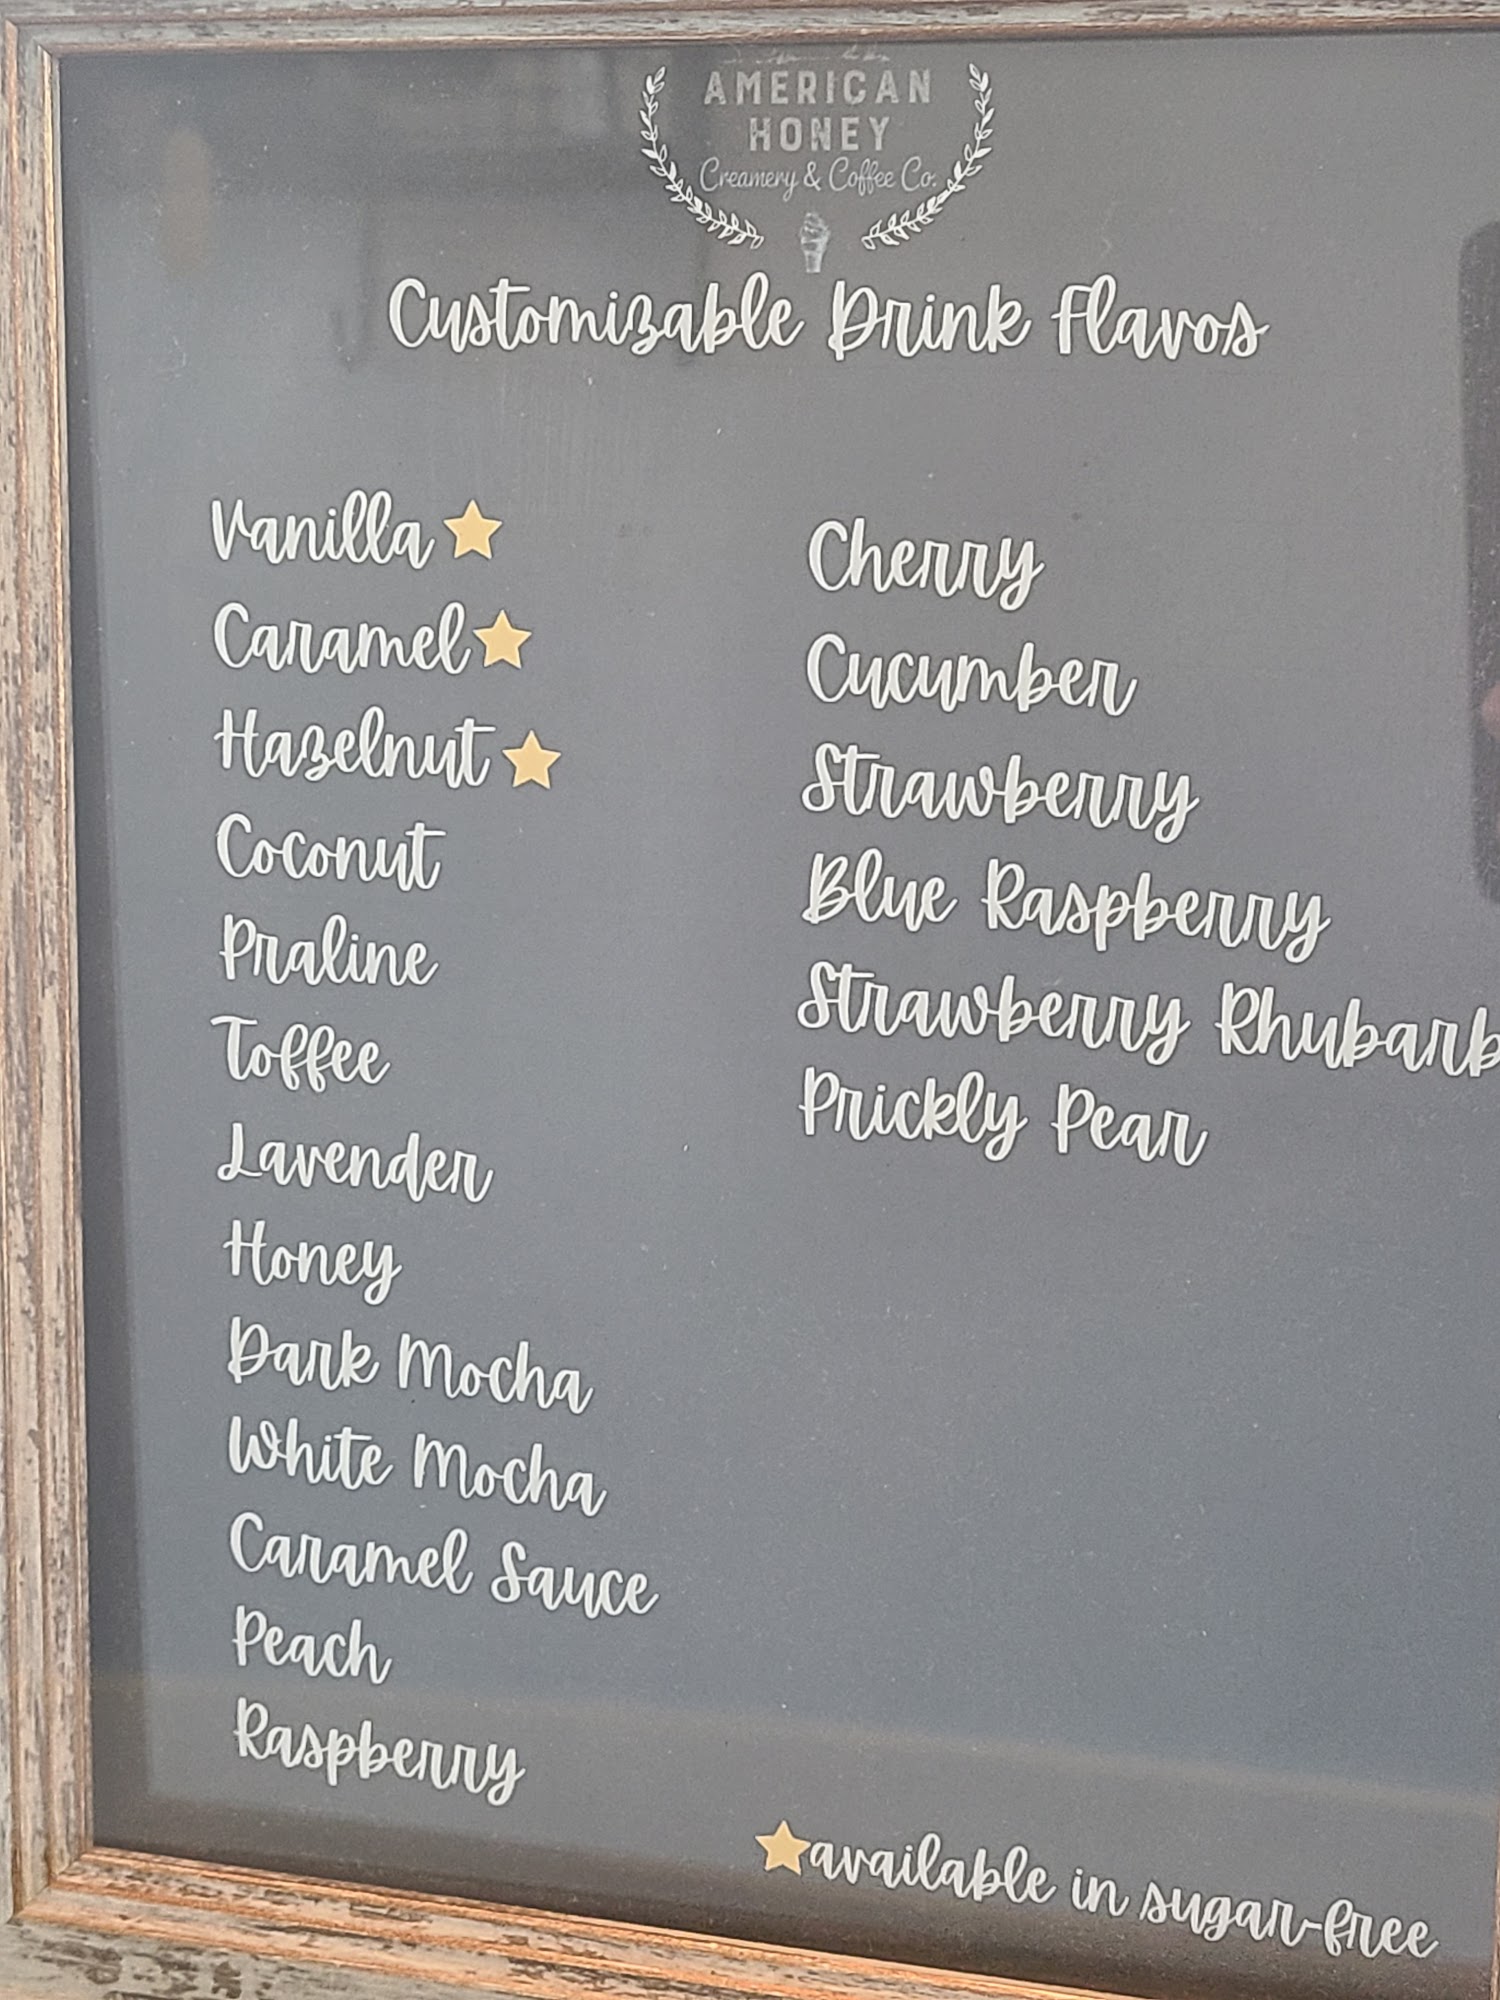 AMERICAN
HONEY
Creamery & Coffee Co.
Customizable Drink Flavos
Vanilla
Caramel
Hazelnut
Coconut
Praline
Toffee
Lavender
Honey
Dark Mocha
White Mocha
Caramel Sauce
Peach
Raspberry
Cherry
Cucumber
Strawberry
Blue Raspberry
Strawberry Rhubarb
Prickly Pear
available in sugar-free